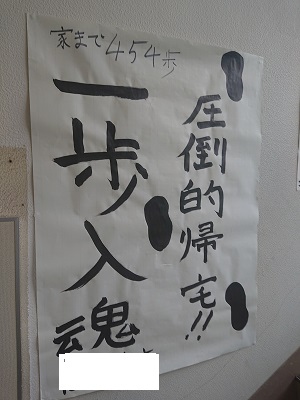 家まで454歩
圧倒的帰宅!!
一歩入魂